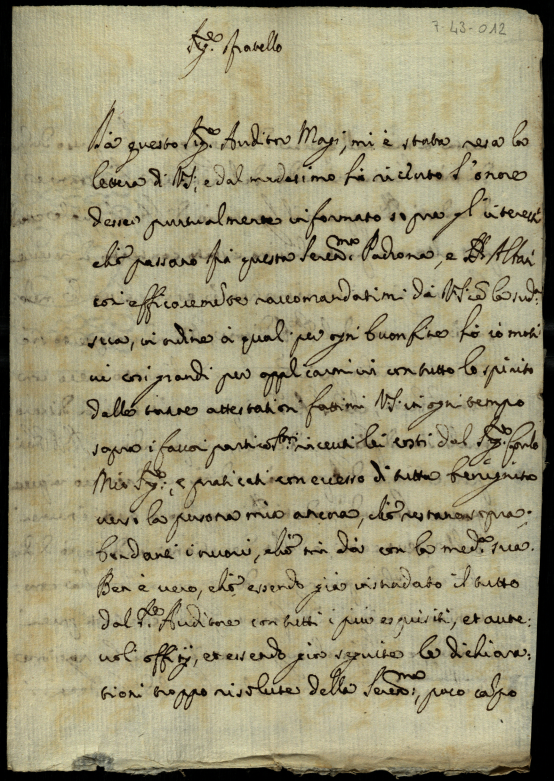 7-43-012
Sig.r fratello
Da questo Sig.r Auditor Magi, mi è stata resa la
lettera di VS; e dal medesimo hò riceuto l'onore
d'esser puntualmente informato sopra gl'interessi
che passano frà questa Seren:ma Padrona, e Altari
così efficacemente raccomandatimi da VS: con la sud:a
sua, in ordine à quali per ogni buon fine hò io moti
ui così grandi per applicarmi con tutto lo spirito
dalle attestationi fattimi VS: in ogni tempo
sopra i fauori riceuti lei costì dal Sig.r Carlo
Mio Sig.re, e praticati con eccesso di tutta benignità
uerso la persona mia ancora, che restano sopra:
bondanti i nuoui, che mi dà con la med:a sua.
Ben è uero, che essendo già instradato il tutto
dal S.r Auditore con tutti i più esquisiti, et aute:
uoli offitij, et essendo già seguite le dichiara:
tioni troppo risolute della Seren:ma, poco campo